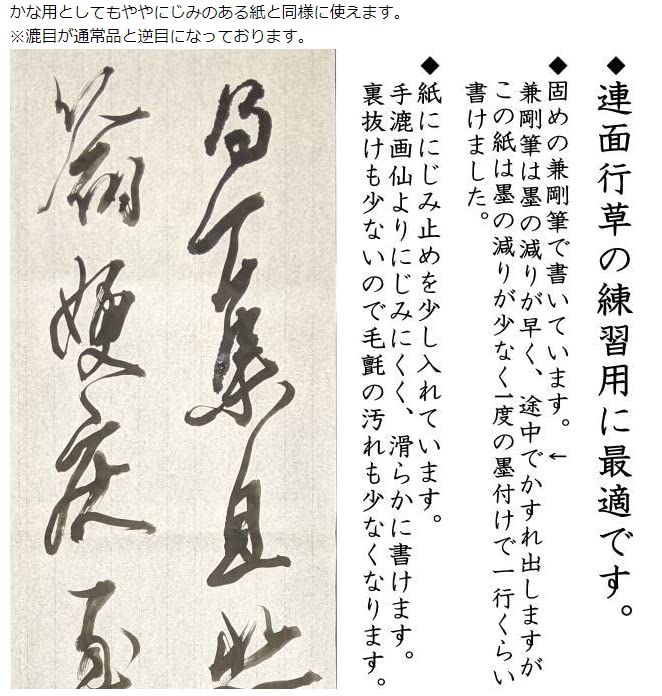 かな用としてもややにじみのある紙と同様に使えます。
※漉目が通常品と逆目になっております。
◆連面行草の練習用に最適です。
◆固めの兼剛筆で書いています。←
兼剛筆は墨の減りが早く、途中でかすれ出しますが
この紙は墨の減りが少なく一度の墨付けで一行くらい
書けました。
◆紙ににじみ止めを少し入れています。
手漉画仙よりにじみにくく、滑らかに書けます。
裏抜けも少ないので毛氈の汚れも少なくなります。